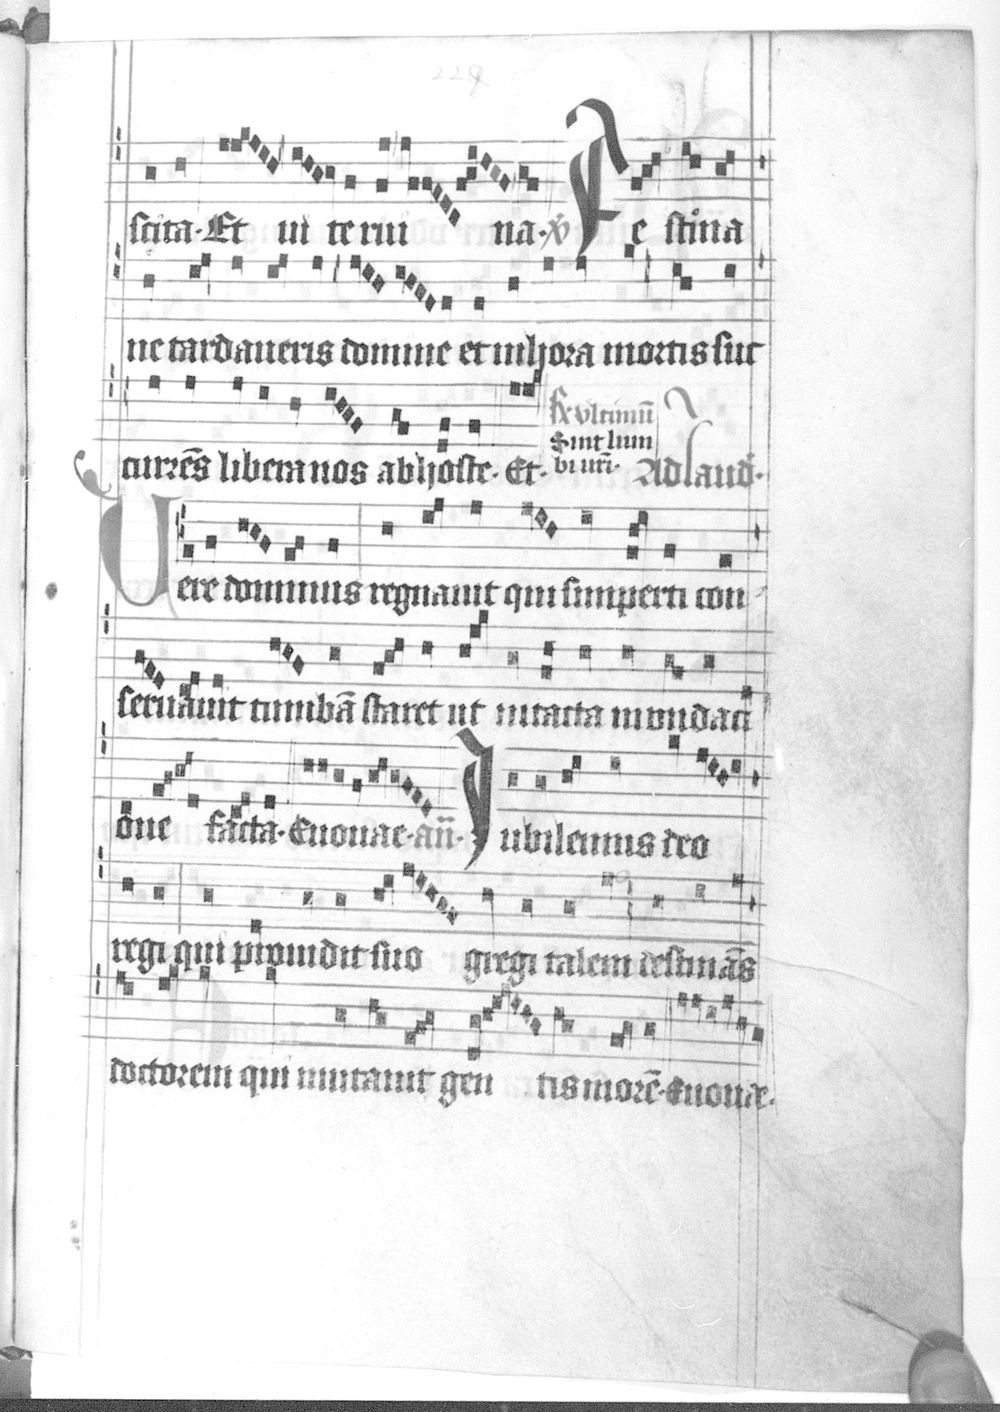 229
scita· Et ui te rin na· V̉ Festina
ne tardaueris domine et in hora mortis suc
currēs libera nos ab hoste· Et·
R̸ vltimū
Sint lum
bi ur̄i· Ad laud̓·
Uere dominus regnauit qui sunperti con
seruauit tumbā staret ut intacta mundaci
one facta· Euouae· an̄· Iubilemus deo
regi qui prouidit suo gregi talem destinās
doctorem qui mutauit gentis morē· Euouae·